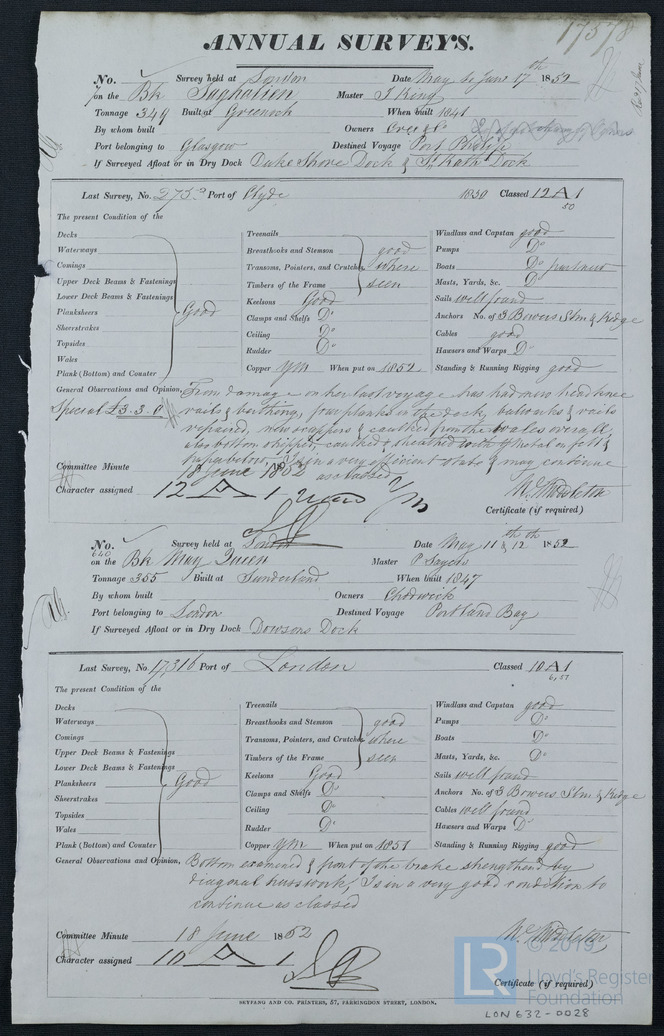 17578
ANNUAL SURVEYS.
No. Survey held at London Date May & June 17th 1852
on the Bk Saghalien Master J King
Tonnage 349 Built at Greenock When built 1841
By whom built Owners
Port belonging to Glasgow Destined Voyage Port Phillip
If Surveyed Afloat or in Dry Dock Duke Shore Dock & St Kath Dock
Last Survey, No. 275 Port of Clyde 1850 Classed 12 A 1
50
The present Condition of the
Decks Treenails Windlass and Capstan good
Waterways Breasthooks and Stemson good Pumps Do
Comings Transoms, Pointers, and Crutches where Boats Do part new
Upper Deck Beams & Fastenings Timbers of the Frame seen Masts, Yards, &c. Do
Lower Deck Beams & Fastenings Keelsons Good Sails well found
Planksheers Good Clamps and Shelfs Do Anchors No. of 3 Bowers Stm & Kedge
Sheerstrakes Ceiling Do Cables good
Topsides Rudder Do Hawsers and Warps Do
Wales Copper YM When put on 1852 Standing & Running Rigging good
Plank (Bottom) and Counter
General Observations and Opinion, From damage on her last voyage has had new head knee
Special £3.3.0 rails & berthing, four planks in the deck, bulwarks & rails
repaired, new scuppers & caulked from the wales over all,
also bottom stripped, caulked & sheathed with Y Metal on felt &
paper below, Is in a very efficient state & may continue
as classed
Committee Minute 18 June 1852
Character assigned 12 A 1
W. Middleton
Certificate (if required)
No. 640 Survey held at London Date May 11th & 12th 1852
on the Bk May Queen Master P Sayers
Tonnage 355 Built at Sunderland When built 1847
By whom built Owners Chadwick
Port belonging to London Destined Voyage Portland Bay
If Surveyed Afloat or in Dry Dock Dowsons Dock
Last Survey, No. 17,316 Port of London Classed 10 A 1
6,51
The present Condition of the
Decks Treenails Windlass and Capstan good
Waterways Breasthooks and Stemson good Pumps Do
Comings Transoms, Pointers, and Crutches where Boats Do
Upper Deck Beams & Fastenings Timbers of the Frame seen Masts, Yards, &c. Do
Lower Deck Beams & Fastenings Keelsons Good Sails well found
Planksheers Good Clamps and Shelfs Do Anchors No. of 3 Bowers Stm & Kedge
Sheerstrakes Ceiling Do Cables well found
Topsides Rudder Do Hawsers and Warps Do
Wales Copper YM When put on 1851 Standing & Running Rigging good
Plank (Bottom) and Counter
General Observations and Opinion, Bottom examined & front of the brake strengthend by
diagonal trusswork, Is in a very good condition to
continue as classed
Committee Minute 18 June 1852
Character assigned 10 A 1
W. Middleton
Certificate (if required)
SEYFANG AND CO. PRINTERS, 57, FARRINGDON STREET, LONDON.
LR © 2019
Lloyd's Register
Foundation
LON 632-0028